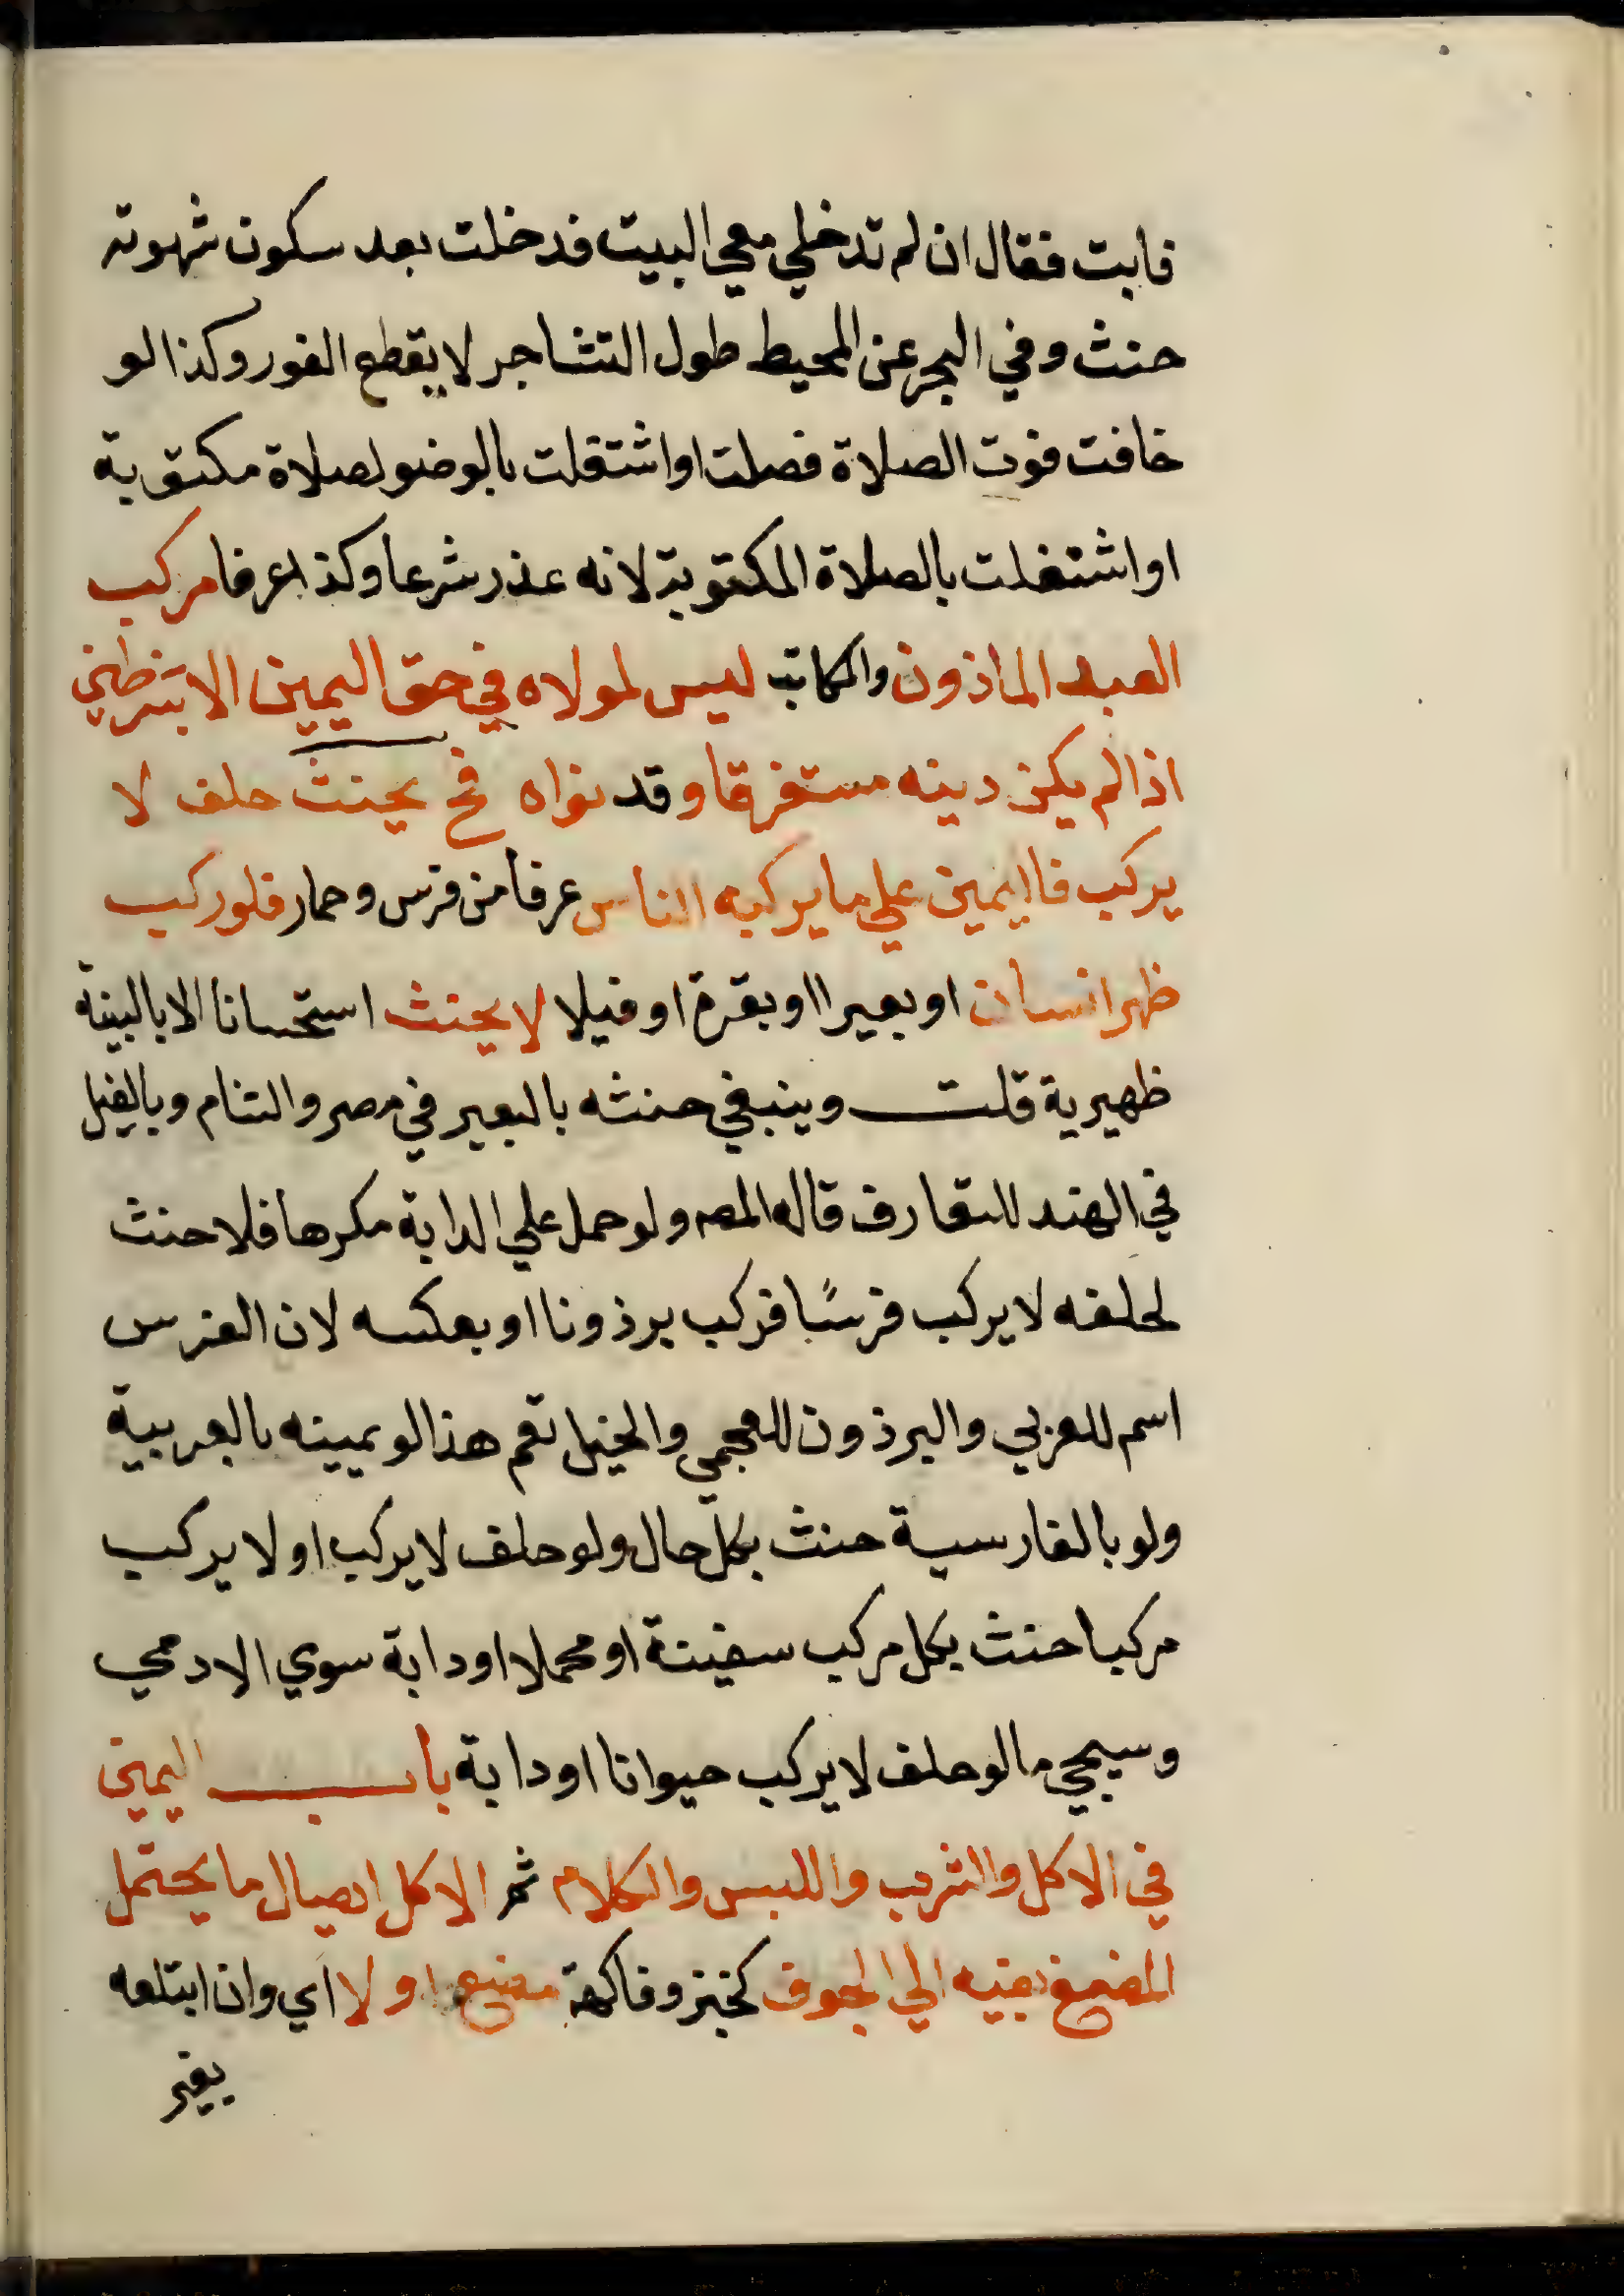 فابت فقال ان لم تدخلي معي البيت فدخلت بعد سكون شهوته
حنث وفي البحر عن المحيط طول التشاجر لا يقطع الفور وكذا لو
خافت فوت الصلاة فصلت او اشتقلت بالوضو لصلاة مكتوبة
او اشتغلت بالصلاة المكتوبة لانه عذر شرعا وكذا عرفا مركب
العبد الماذون والمكاتب ليس لمولاه في حق اليمين الا بشرطين
اذا لم يكن دينه مستغرقا وقد نواه فح يحنث حلف لا
يركب فاليمين علي ما يركبه الناس عرفا من فرس وحمار فلو ركب
ظهر انسان او بعيرا او بقرة او فيلا لا يحنث استحسانا الا بالبينة
ظهيرية قلت وينبغي حنثه بالبعير في مصر والشام وبالفيل
في الهند للتعارف قاله المصه ولو حمل علي الدابة مكرها فلا حنث
لحلفه لا يركب فرسًا فركب برذونا او بعكسه لان الفرس
اسم للعربي والبرذون للعجمي والخيل تعم هذا لو يمينه بالعربية
ولو بالفارسية حنث بكل حال ولو حلف لا يركب او لا يركب
مركبا حنث بكل مركب سفينة او محملا او دابة سوي الادمي
وسيجي ما لو حلف لا يركب حيوانا او دابة باب اليمين
في الاكل والشرب واللبس والكلام ثم الاكل ايصال ما يحتمل
المضمغ بفيه الي الجوف كخبز وفاكهة مضغ او لا اي وان ابتلعه
بغير